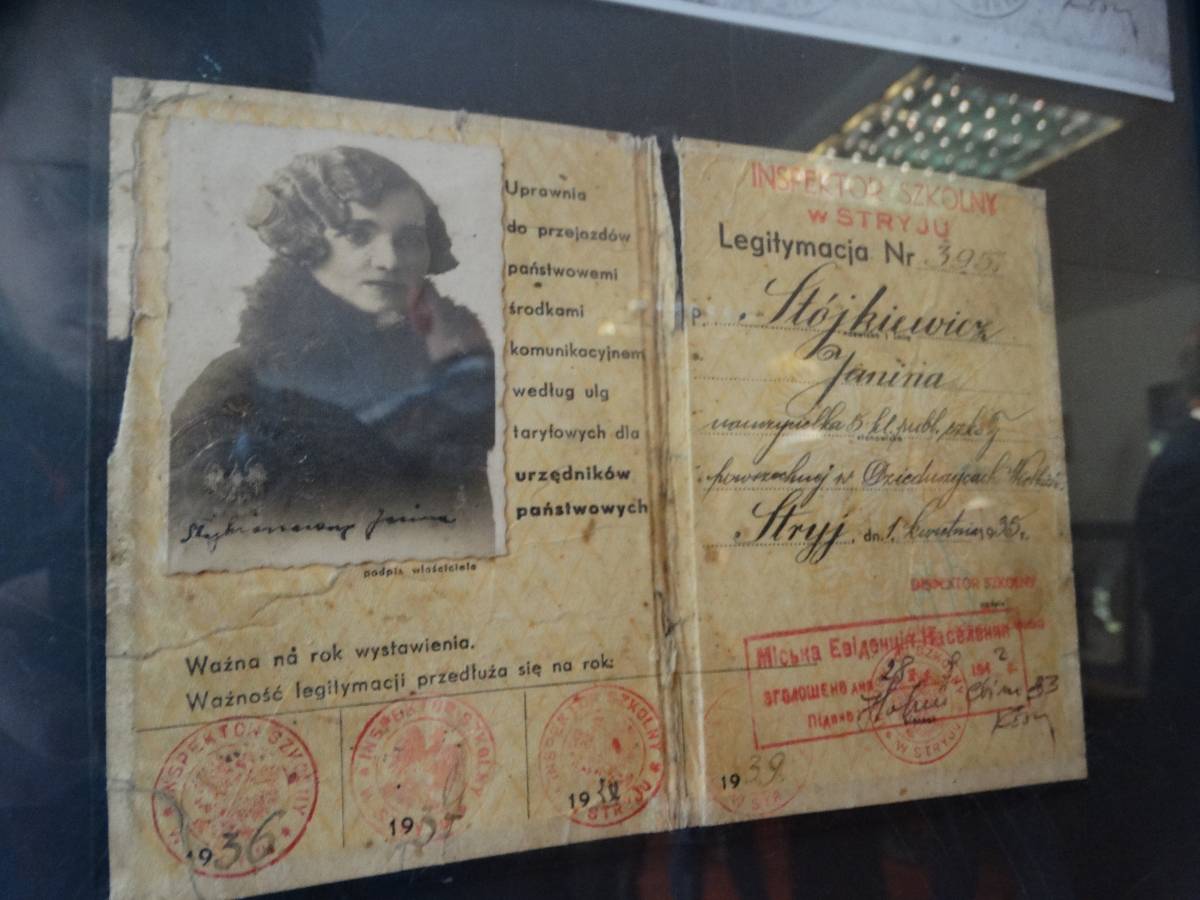 Uprawnia
do przejazdów
państwowemi
środkami
komunikacyjnemi
według ulg
taryfowych dla
urzędników
państwowych
Janina
podpis właściciela
Ważna na rok wystawienia.
Ważność legitymacji przedłuża się na rok:
INSPEKTOR SZKOLNY
W STRYJU
1936
INSPEKTOR SZKOLNY
19
INSPEKTOR SZKOLNY
STRYJU
19
1939
INSPEKTOR SZKOLNY
W STRYJU
Legitymacja Nr 395
p. Stójkiewicz
Janina
nauczycielka 5 kl. publ. szkoły
powszechnej w Dzieduszycach
Stryj, dn. 1. kwietnia 1935 r.
INSPEKTOR SZKOLNY
Міська Евіденція Населення
зголошено дня 28 1942 р.
Підпис
W STRYJU